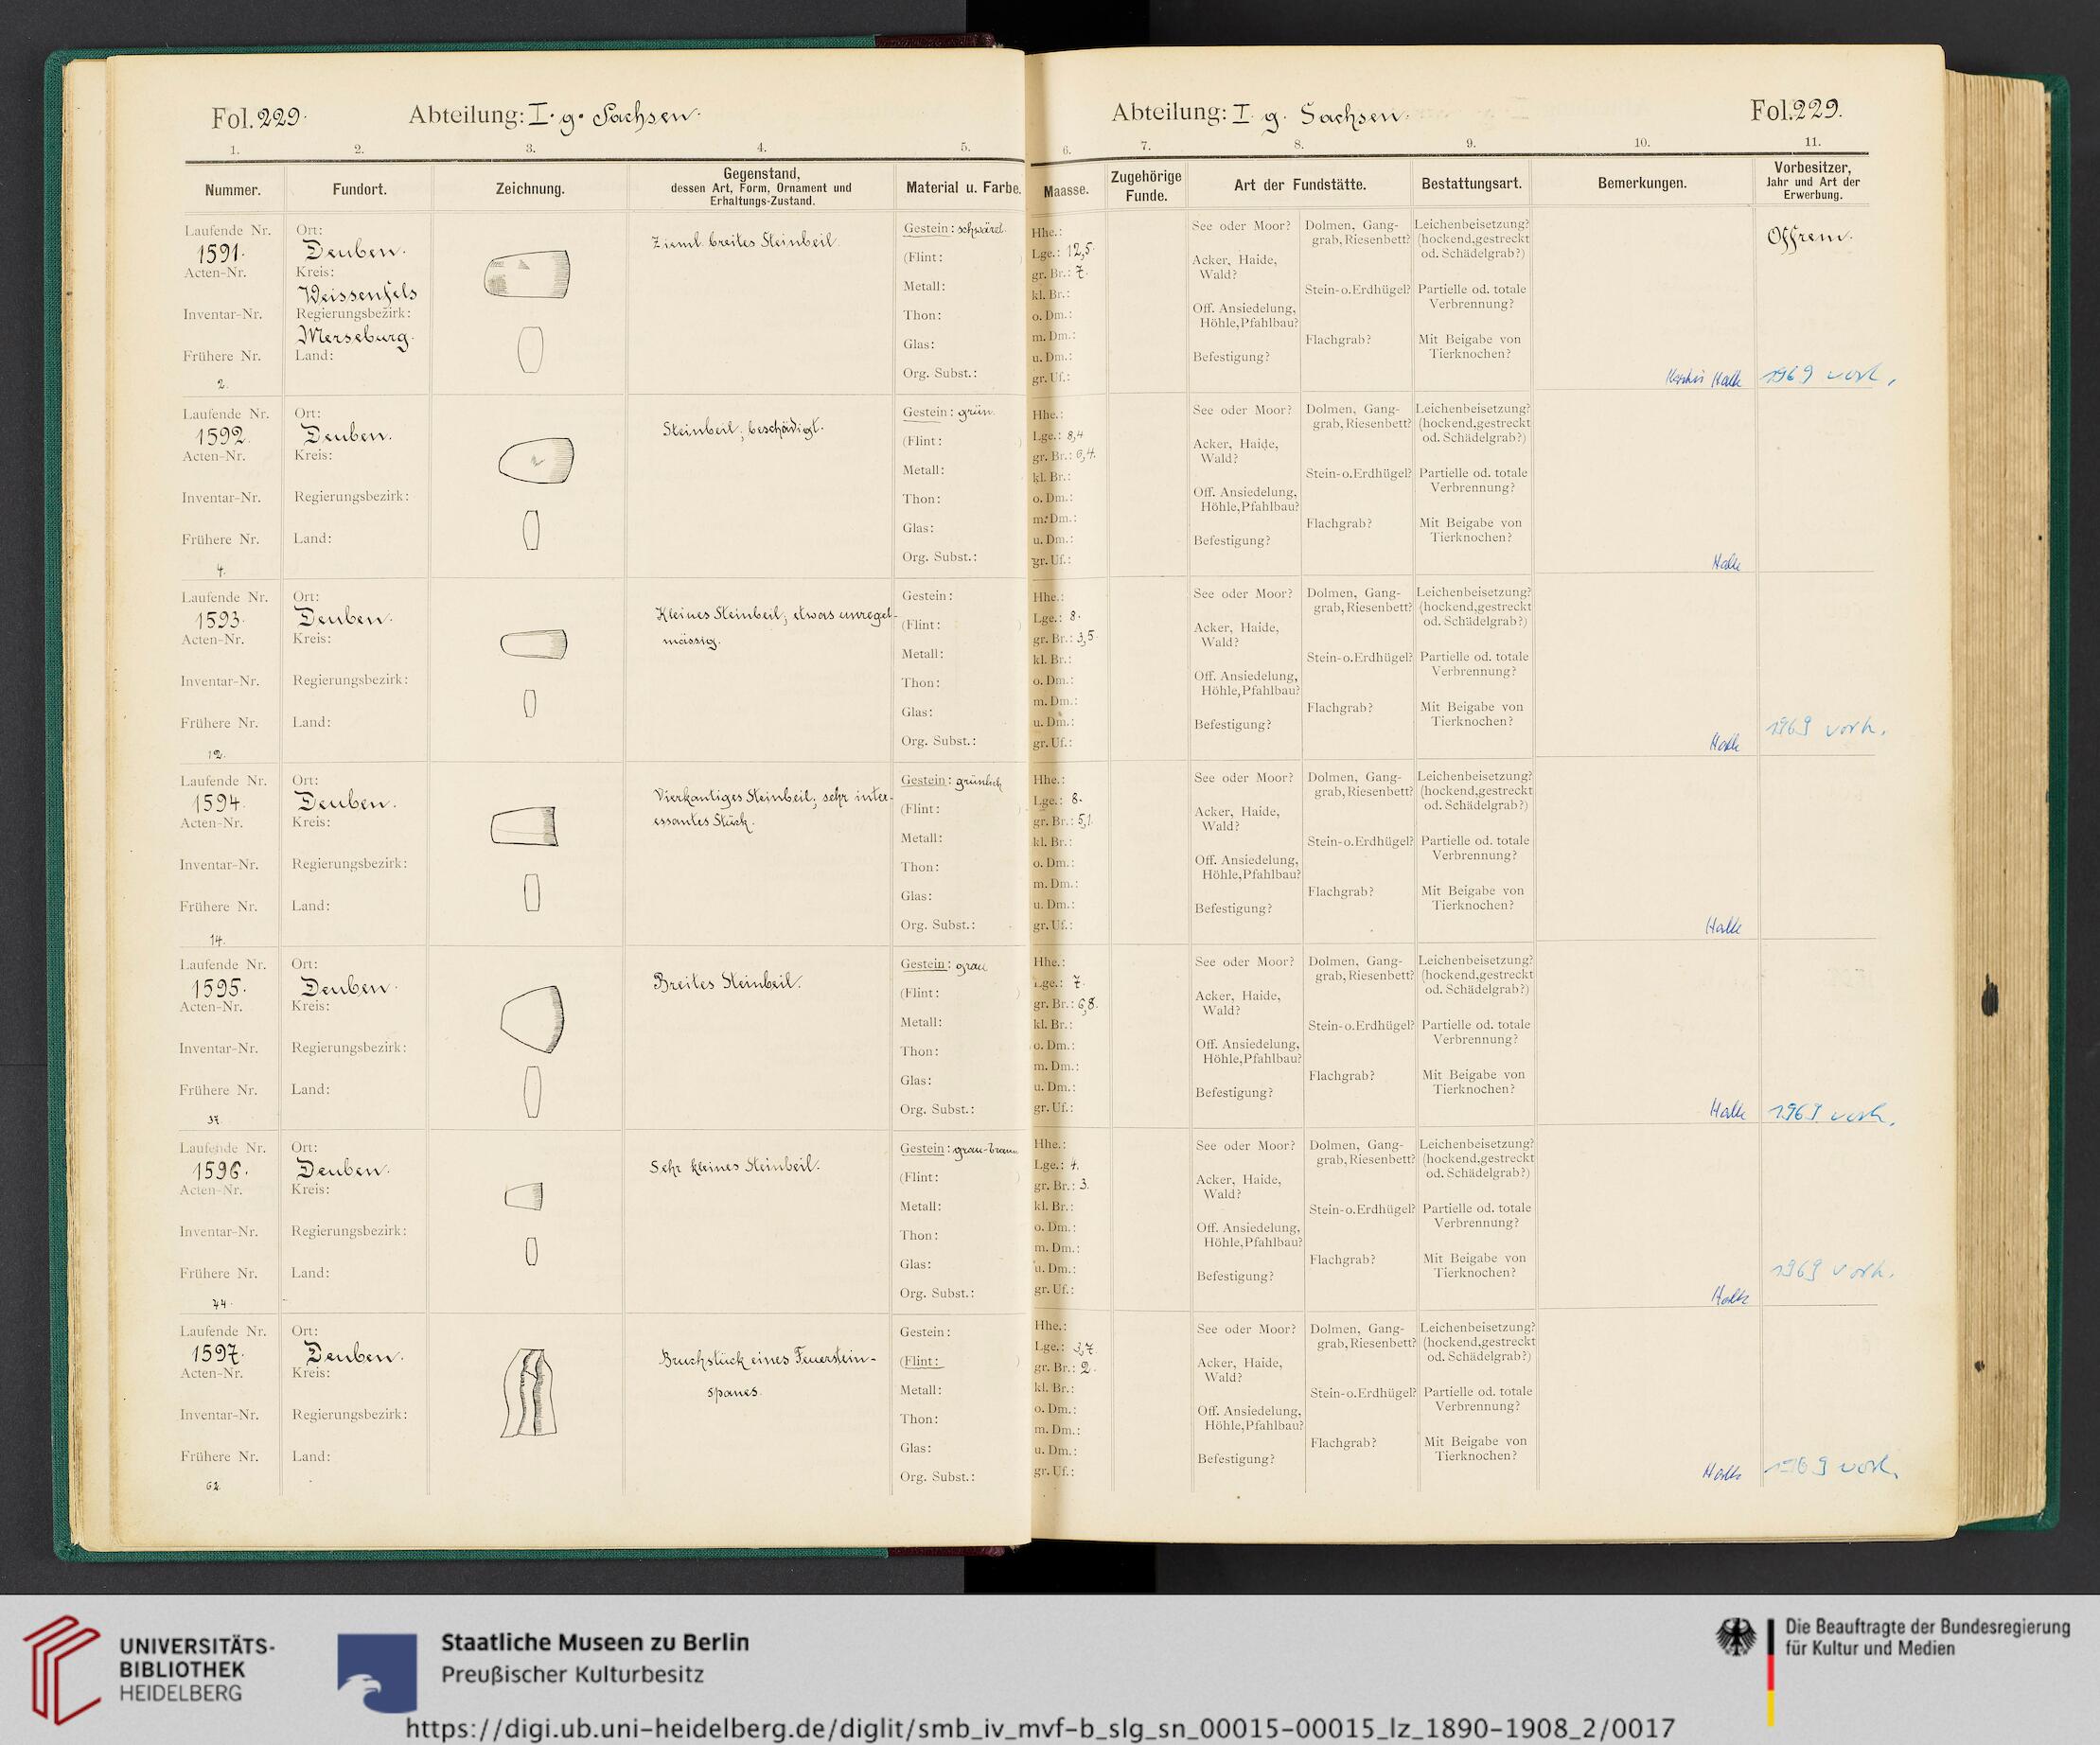 Fol. 229.
Abteilung: I. g. Sachsen.
Abteilung: I. g. Sachsen.
Fol. 229.
1. 2. 3. 4. 5. 6. 7. 8. 9. 10. 11.
Nummer.
Fundort.
Zeichnung.
Gegenstand,
dessen Art, Form, Ornament und
Erhaltungs-Zustand.
Material u. Farbe.
Maasse.
Zugehörige
Funde.
Art der Fundstätte.
Bestattungsart.
Bemerkungen.
Vorbesitzer,
Jahr und Art der
Erwerbung.
Laufende Nr.
1591.
Acten-Nr.
Inventar-Nr.
Frühere Nr.
2.
Ort:
Deuben.
Kreis:
Weissenfels
Regierungsbezirk:
Merseburg.
Land:
Zieml. breites Steinbeil.
Gestein:
(Flint: )
Metall:
Thon:
Glas:
Org. Subst.:
Hhe.:
Lge.: 12,5.
gr. Br.: 7.
kl. Br.:
o. Dm.:
m. Dm.:
u. Dm.:
gr. Uf.:
See oder Moor?
Acker, Haide,
Wald?
Off. Ansiedelung,
Höhle, Pfahlbau?
Befestigung?
Dolmen, Gang-
grab, Riesenbett?
Stein- o. Erdhügel?
Flachgrab?
Leichenbeisetzung?
(hockend, gestreckt
od. Schädelgrab?)
Partielle od. totale
Verbrennung?
Mit Beigabe von
Tierknochen?
Halle
1969 vorh.
Laufende Nr.
1592.
Acten-Nr.
Inventar-Nr.
Frühere Nr.
4.
Ort:
Deuben.
Kreis:
Regierungsbezirk:
Land:
Steinbeil; beschädigt.
Gestein: grün.
(Flint: )
Metall:
Thon:
Glas:
Org. Subst.:
Hhe.:
Lge.: 8,4
gr. Br.: 6,4.
kl. Br.:
o. Dm.:
m. Dm.:
u. Dm.:
gr. Uf.:
See oder Moor?
Acker, Haide,
Wald?
Off. Ansiedelung,
Höhle, Pfahlbau?
Befestigung?
Dolmen, Gang-
grab, Riesenbett?
Stein- o. Erdhügel?
Flachgrab?
Leichenbeisetzung?
(hockend, gestreckt
od. Schädelgrab?)
Partielle od. totale
Verbrennung?
Mit Beigabe von
Tierknochen?
Halle
Laufende Nr.
1593.
Acten-Nr.
Inventar-Nr.
Frühere Nr.
12.
Ort:
Deuben.
Kreis:
Regierungsbezirk:
Land:
Kleines Steinbeil; etwas unregel-
mässig.
Gestein:
(Flint: )
Metall:
Thon:
Glas:
Org. Subst.:
Hhe.:
Lge.: 8.
gr. Br.: 3,5
kl. Br.:
o. Dm.:
m. Dm.:
u. Dm.:
gr. Uf.:
See oder Moor?
Acker, Haide,
Wald?
Off. Ansiedelung,
Höhle, Pfahlbau?
Befestigung?
Dolmen, Gang-
grab, Riesenbett?
Stein- o. Erdhügel?
Flachgrab?
Leichenbeisetzung?
(hockend, gestreckt
od. Schädelgrab?)
Partielle od. totale
Verbrennung?
Mit Beigabe von
Tierknochen?
Halle
1969 vorh.
Laufende Nr.
1594.
Acten-Nr.
Inventar-Nr.
Frühere Nr.
14.
Ort:
Deuben.
Kreis:
Regierungsbezirk:
Land:
Vierkantiges Steinbeil; sehr inter-
essantes Stück.
Gestein: grünlich
(Flint: )
Metall:
Thon:
Glas:
Org. Subst.:
Hhe.:
Lge.: 8.
gr. Br.: 5,1.
kl. Br.:
o. Dm.:
m. Dm.:
u. Dm.:
gr. Uf.:
See oder Moor?
Acker, Haide,
Wald?
Off. Ansiedelung,
Höhle, Pfahlbau?
Befestigung?
Dolmen, Gang-
grab, Riesenbett?
Stein- o. Erdhügel?
Flachgrab?
Leichenbeisetzung?
(hockend, gestreckt
od. Schädelgrab?)
Partielle od. totale
Verbrennung?
Mit Beigabe von
Tierknochen?
Halle
Laufende Nr.
1595.
Acten-Nr.
Inventar-Nr.
Frühere Nr.
37.
Ort:
Deuben.
Kreis:
Regierungsbezirk:
Land:
Breites Steinbeil.
Gestein: grau
(Flint: )
Metall:
Thon:
Glas:
Org. Subst.:
Hhe.:
Lge.: 7.
gr. Br.: 6,8.
kl. Br.:
o. Dm.:
m. Dm.:
u. Dm.:
gr. Uf.:
See oder Moor?
Acker, Haide,
Wald?
Off. Ansiedelung,
Höhle, Pfahlbau?
Befestigung?
Dolmen, Gang-
grab, Riesenbett?
Stein- o. Erdhügel?
Flachgrab?
Leichenbeisetzung?
(hockend, gestreckt
od. Schädelgrab?)
Partielle od. totale
Verbrennung?
Mit Beigabe von
Tierknochen?
Halle
1969 vorh.
Laufende Nr.
1596.
Acten-Nr.
Inventar-Nr.
Frühere Nr.
44.
Ort:
Deuben.
Kreis:
Regierungsbezirk:
Land:
Sehr kleines Steinbeil.
Gestein: grau-braun
(Flint: )
Metall:
Thon:
Glas:
Org. Subst.:
Hhe.:
Lge.: 4.
gr. Br.: 3.
kl. Br.:
o. Dm.:
m. Dm.:
u. Dm.:
gr. Uf.:
See oder Moor?
Acker, Haide,
Wald?
Off. Ansiedelung,
Höhle, Pfahlbau?
Befestigung?
Dolmen, Gang-
grab, Riesenbett?
Stein- o. Erdhügel?
Flachgrab?
Leichenbeisetzung?
(hockend, gestreckt
od. Schädelgrab?)
Partielle od. totale
Verbrennung?
Mit Beigabe von
Tierknochen?
Halle
1969 vorh.
Laufende Nr.
1597.
Acten-Nr.
Inventar-Nr.
Frühere Nr.
62.
Ort:
Deuben.
Kreis:
Regierungsbezirk:
Land:
Bruchstück eines Feuerstein-
spanes.
Gestein:
(Flint: )
Metall:
Thon:
Glas:
Org. Subst.:
Hhe.:
Lge.: 3,7.
gr. Br.: 2.
kl. Br.:
o. Dm.:
m. Dm.:
u. Dm.:
gr. Uf.:
See oder Moor?
Acker, Haide,
Wald?
Off. Ansiedelung,
Höhle, Pfahlbau?
Befestigung?
Dolmen, Gang-
grab, Riesenbett?
Stein- o. Erdhügel?
Flachgrab?
Leichenbeisetzung?
(hockend, gestreckt
od. Schädelgrab?)
Partielle od. totale
Verbrennung?
Mit Beigabe von
Tierknochen?
Halle
1969 vorh.
UNIVERSITÄTS-
BIBLIOTHEK
HEIDELBERG
Staatliche Museen zu Berlin
Preußischer Kulturbesitz
Die Beauftragte der Bundesregierung
für Kultur und Medien
https://digi.ub.uni-heidelberg.de/diglit/smb_iv_mvf-b_slg_sn_00015-00015_lz_1890-1908_2/0017